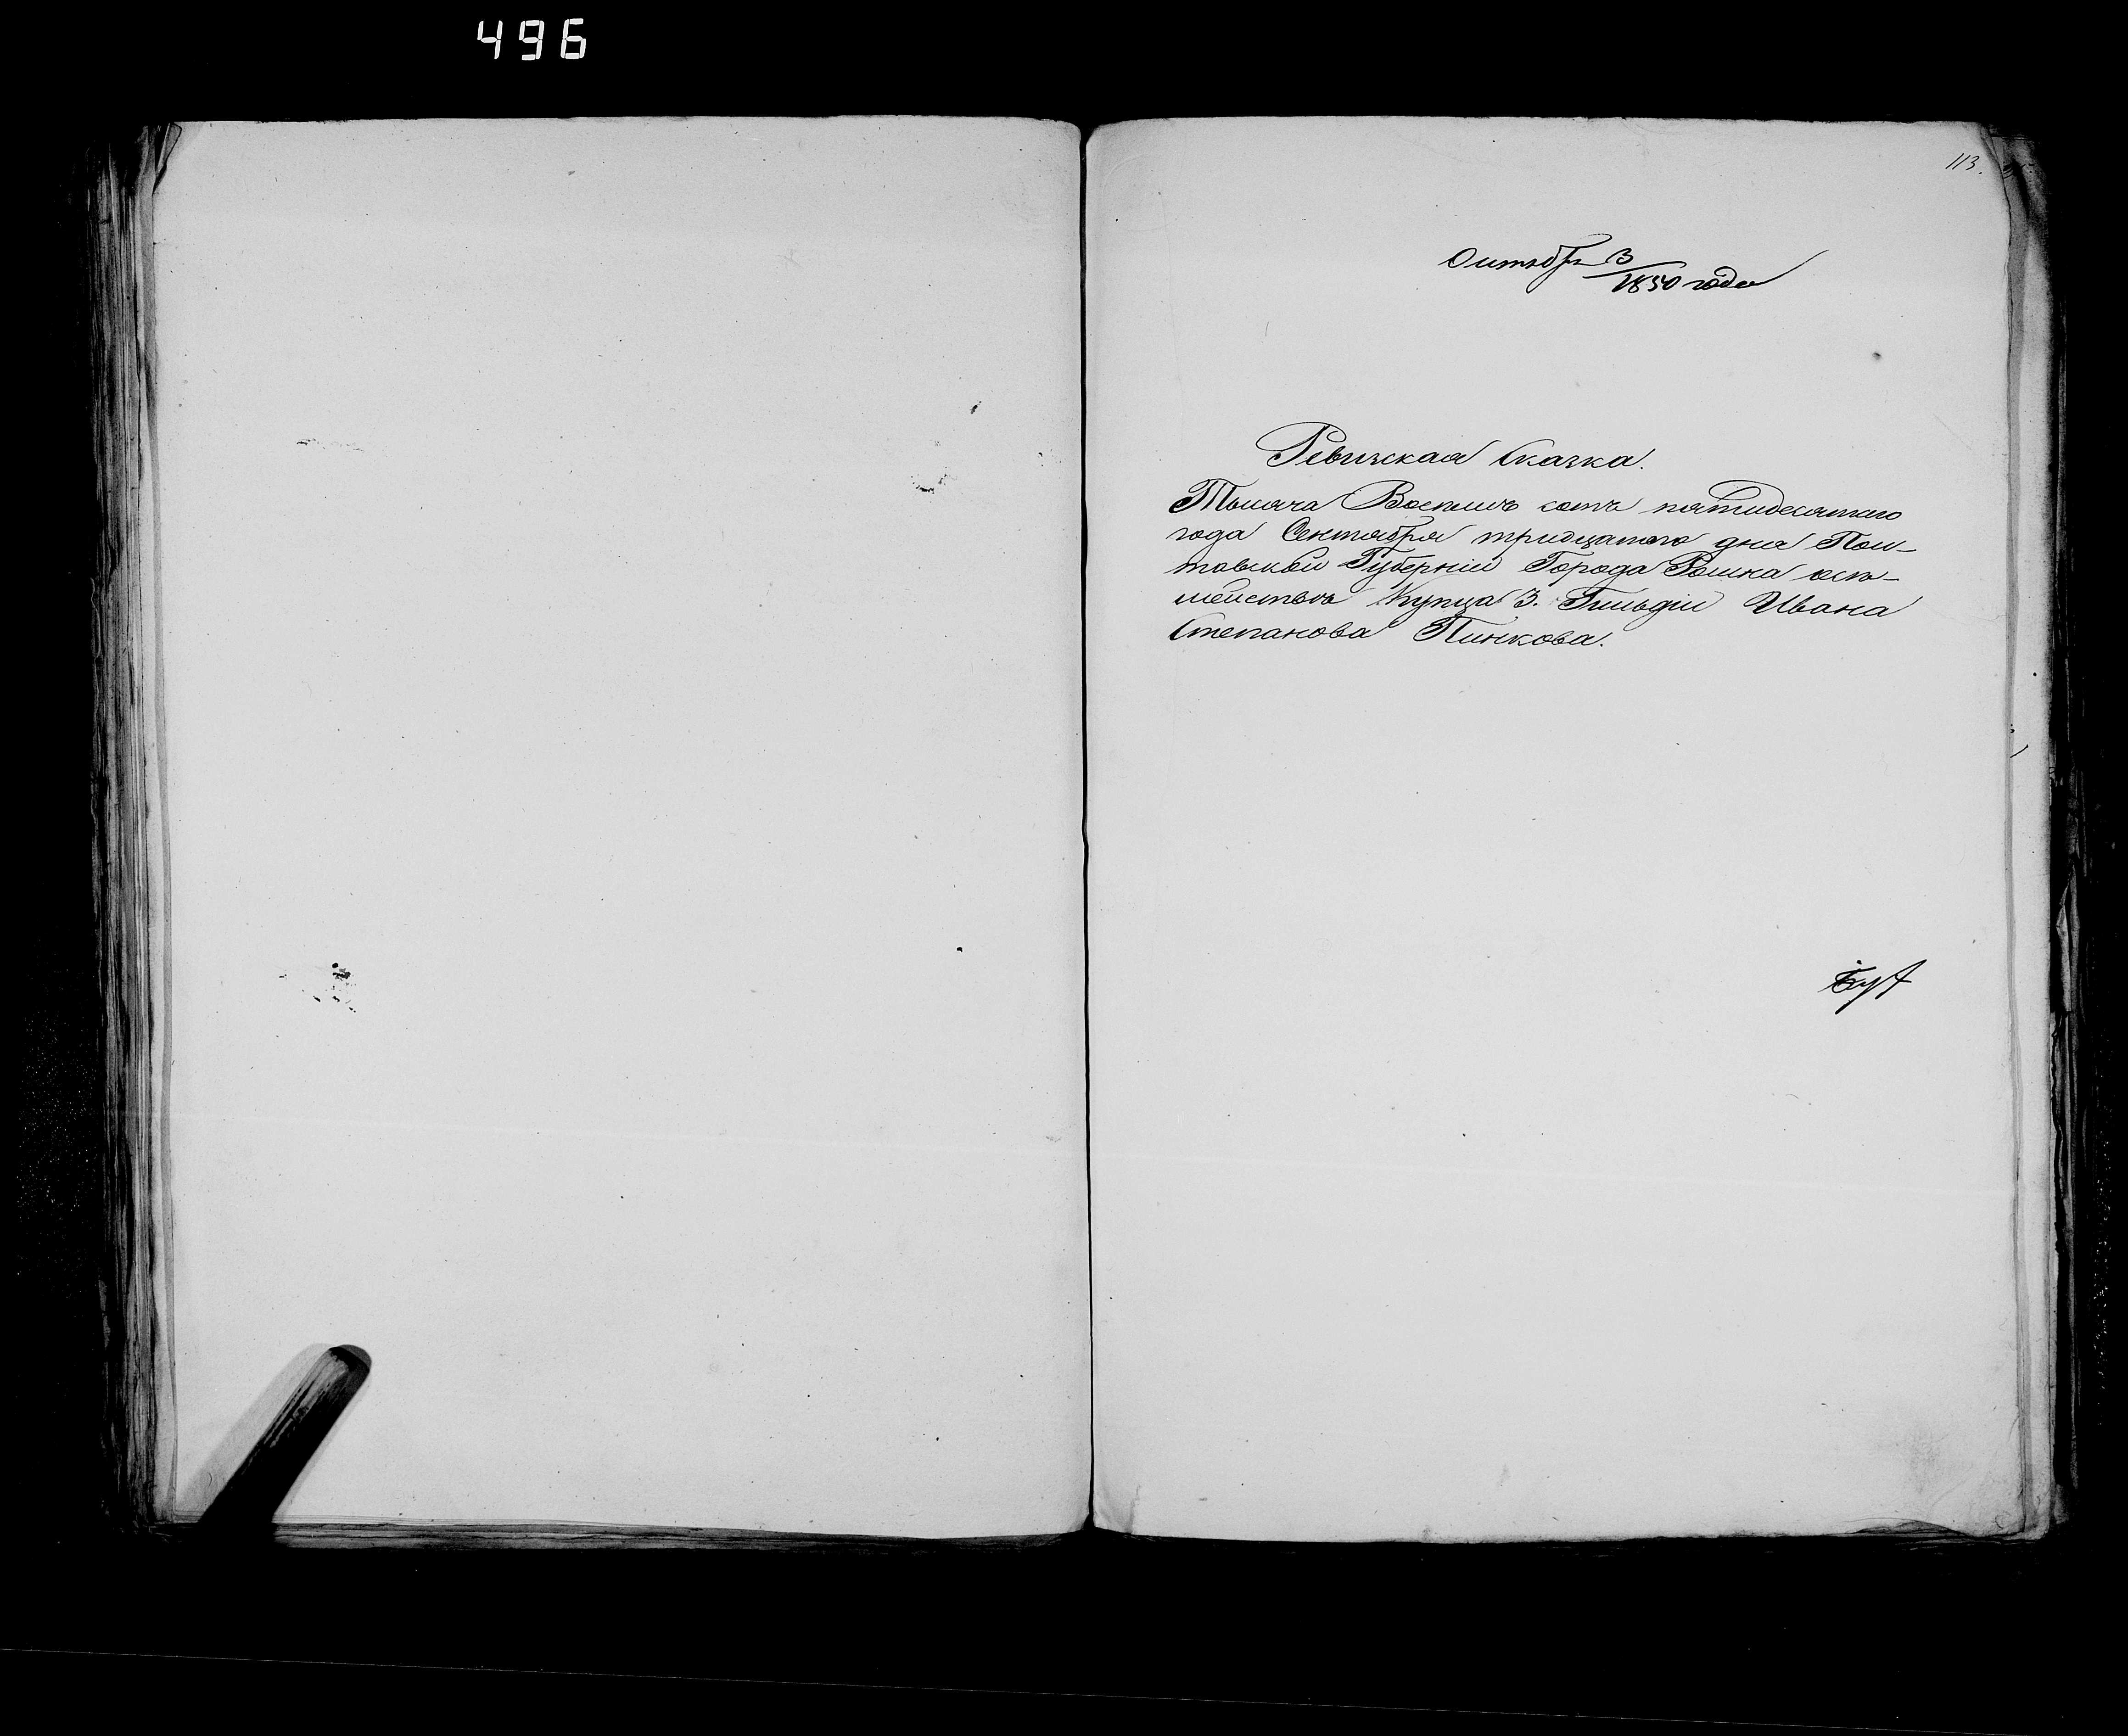 496
113.
Октября 3
1850 года
Ревизская Сказка.
Тысяча Восемь сотъ пятидесятого
года Сентября тридцатого дня Пол-
тавской Губерніи Города Ромна о се-
мействѣ Купца 3. Гильдіи Ивана
Степанова Пинкова.